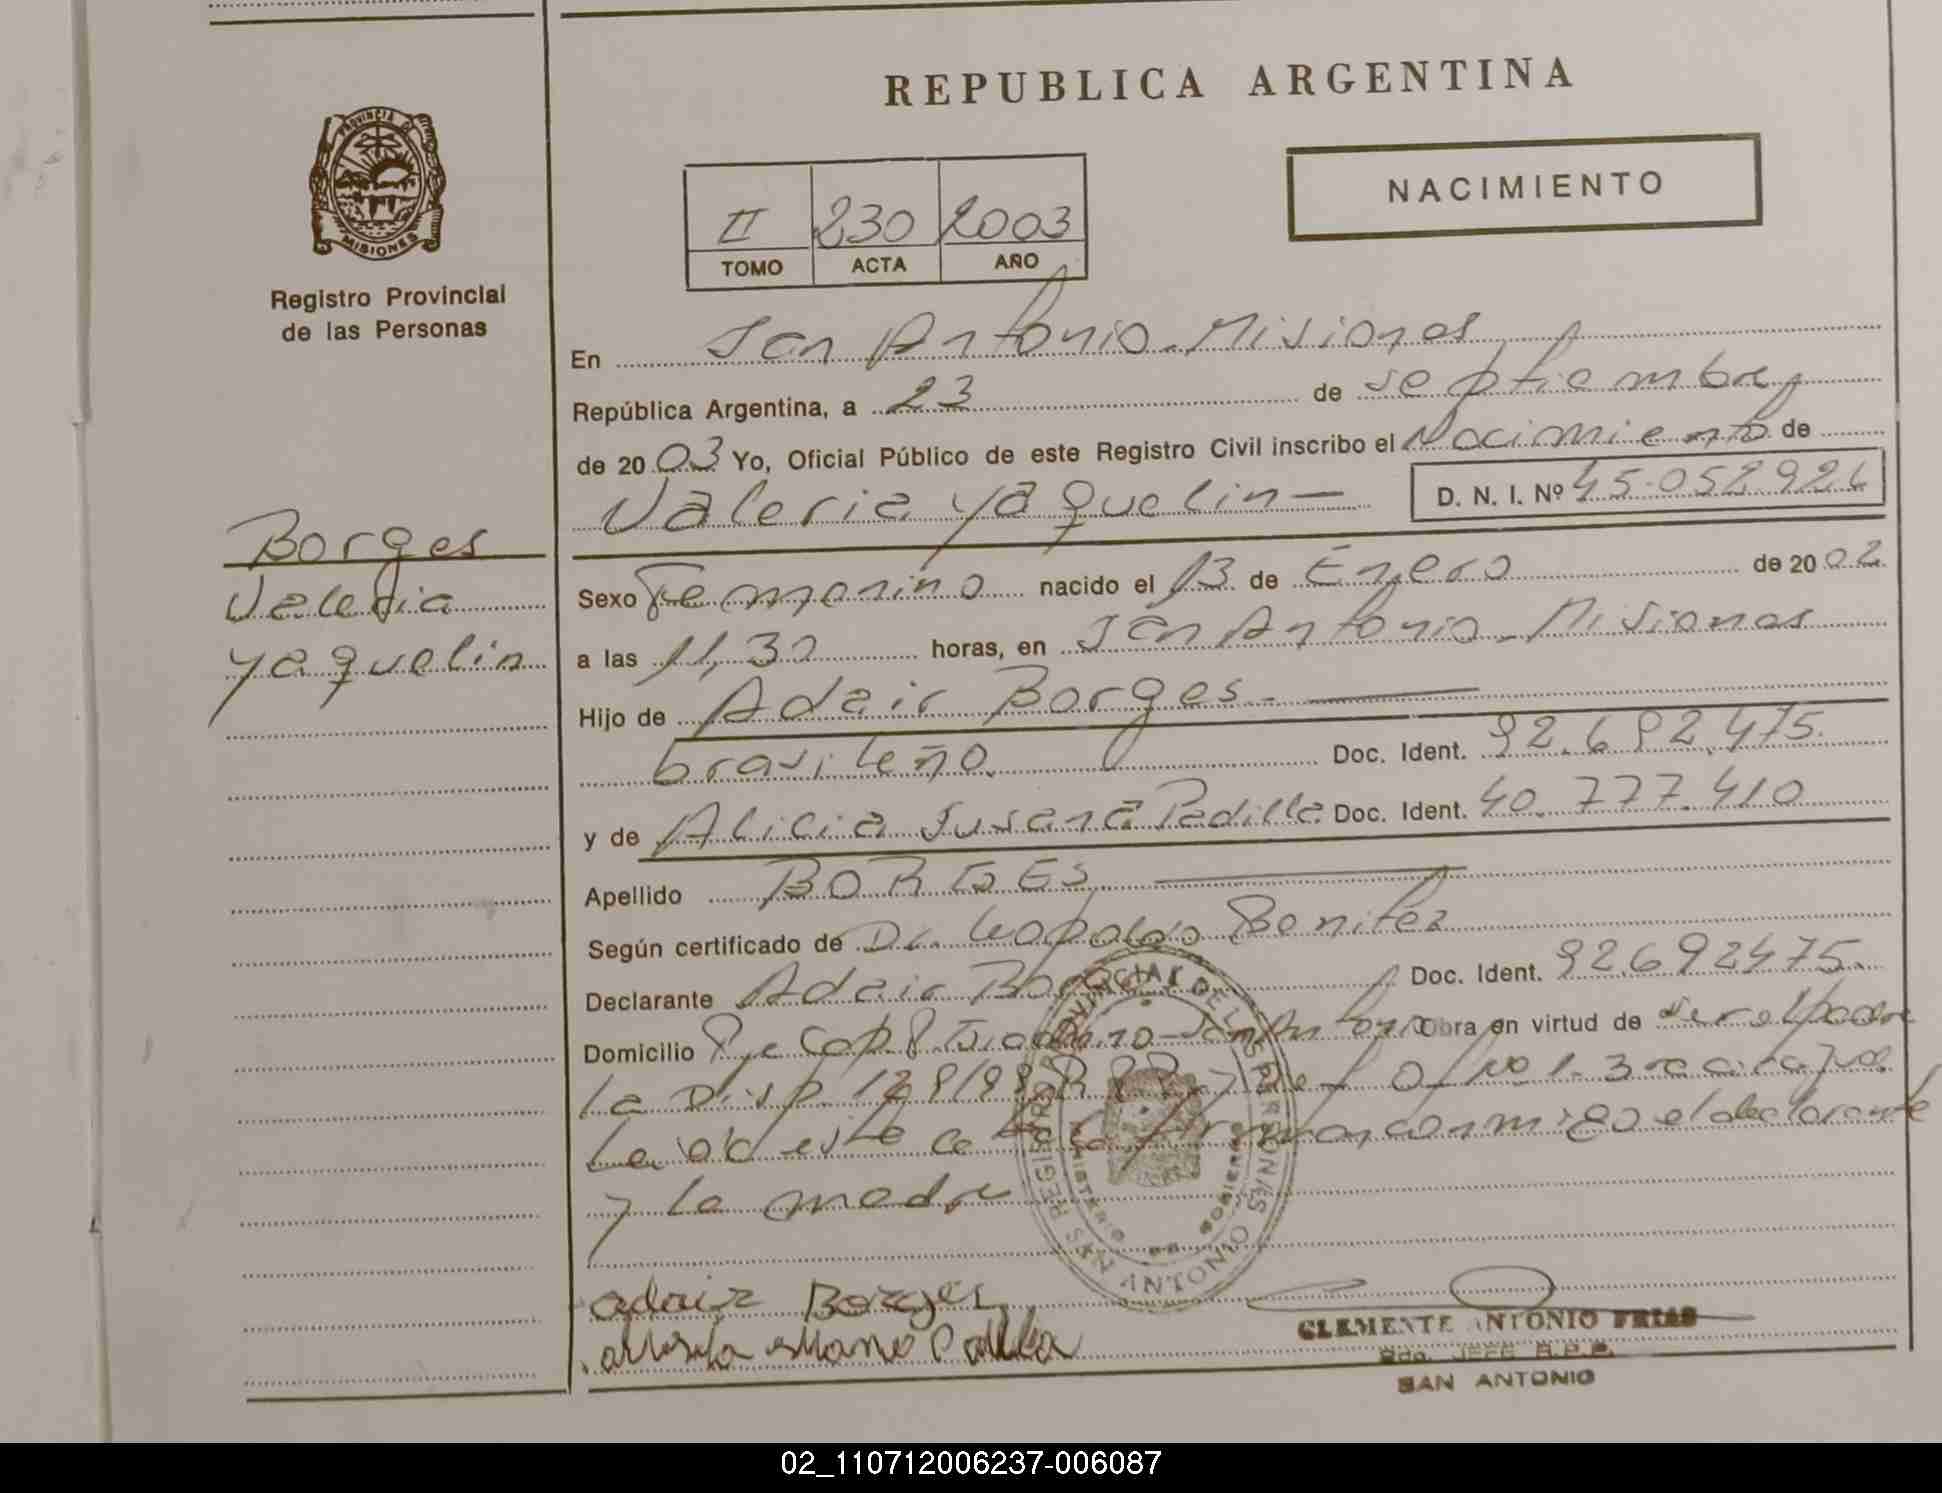 PROVINCIA DE
MISIONES
Registro Provincial
de las Personas
Borges
Valeria
Yaquelin
REPUBLICA ARGENTINA
NACIMIENTO
II 230 2003
TOMO ACTA AÑO
En San Antonio - Misiones
República Argentina, a 23 de septiembre
de 2003 Yo, Oficial Público de este Registro Civil inscribo el Nacimiento de
Valeria Yaquelin — D. N. I. Nº
Sexo Femenino nacido el 13 de Enero de 2002
a las 11,30 horas, en San Antonio - Misiones
Hijo de Adair Borges -
brasileño. Doc. Ident. 92.692.475.
y de Alicia Susana Padilla Doc. Ident. 40.777.410
Apellido BORGES
Según certificado de Dr. Leopoldo Benitez
Declarante Adair Borges Doc. Ident. 92692475.
Domicilio San Antonio Obra en virtud de ser el padre
La Disp.
este firman conmigo el declarante
y la madre
adair Borges
Padilla
SAN ANTONIO
CLEMENTE ANTONIO FRIAS
JEFE R.P.P.
SAN ANTONIO
02_110712006237-006087